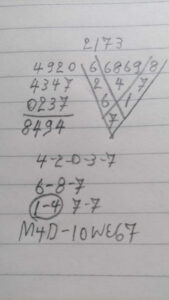 2173
4920 6 6869 8
4347 2 4 7
0237 6 1
8494 7
4-2-0-3-7
6-8-7
1-4 7-7
M4D-10WE67